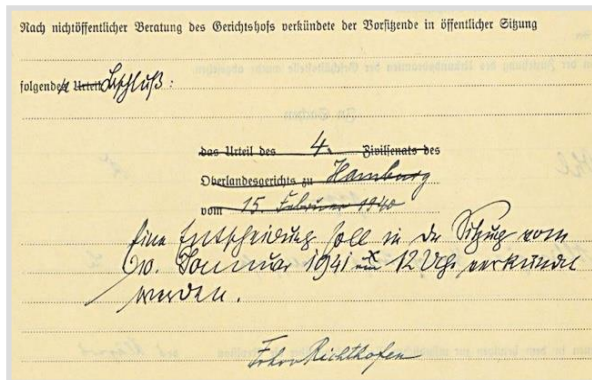 Nach nichtöffentlicher Beratung des Gerichtshofs verkündete der Vorsitzende in öffentlicher Sitzung
folgenden Urteil Beschluß:
das Urteil des 4. Zivilsenats des
Oberlandesgerichts zu Hamburg
vom 15. Februar 1940
Eine Entscheidung soll in der Sitzung vom
10. Januar 1941 um 12 Uhr verkündet
werden.
Richthofen